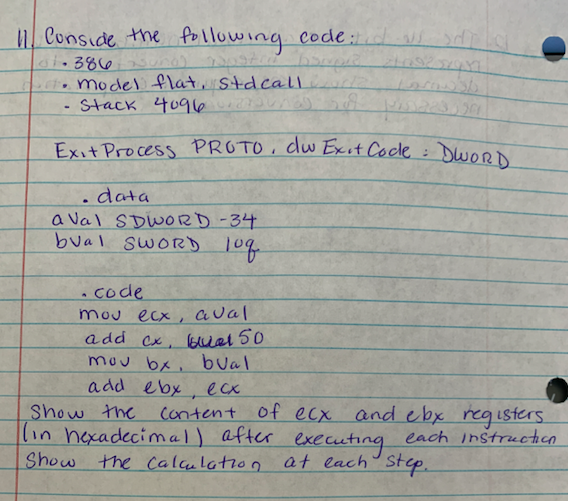 11. Conside the following code:
.386
. model flat, stdcall
- Stack 4096
ExitProcess PROTO, dwExitCode : DWORD
. data
aVal SDWORD -34
bval SWORD 10q
. code
mov ecx, aval
add cx, 50
mov bx, bval
add ebx, ecx
Show the content of ecx and ebx registers
(in hexadecimal) after executing each instruction
Show the calculation at each step.